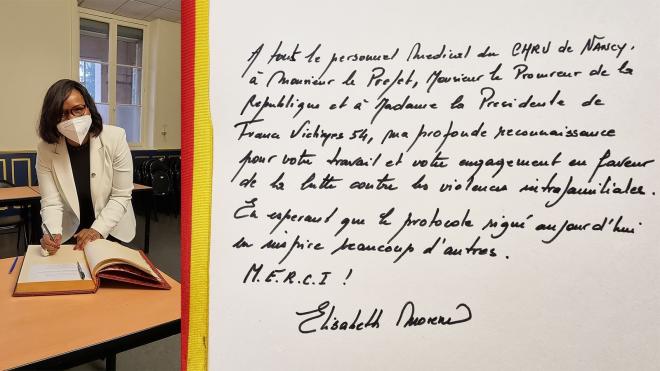 A tout le personnel medical du CHRU de NANCY,
à Monsieur le Prefet, Monsieur le Procureur de la
Republique et à Madame la Presidente de
France Victimes 54, ma profonde reconnaissance
pour votre travail et votre engagement en faveur
de la lutte contre les violences intrafamiliales.
En esperant que le protocole signé aujourd'hui
en inspire beaucoup d'autres.
M.E.R.C.I !
Elisabeth Moreno